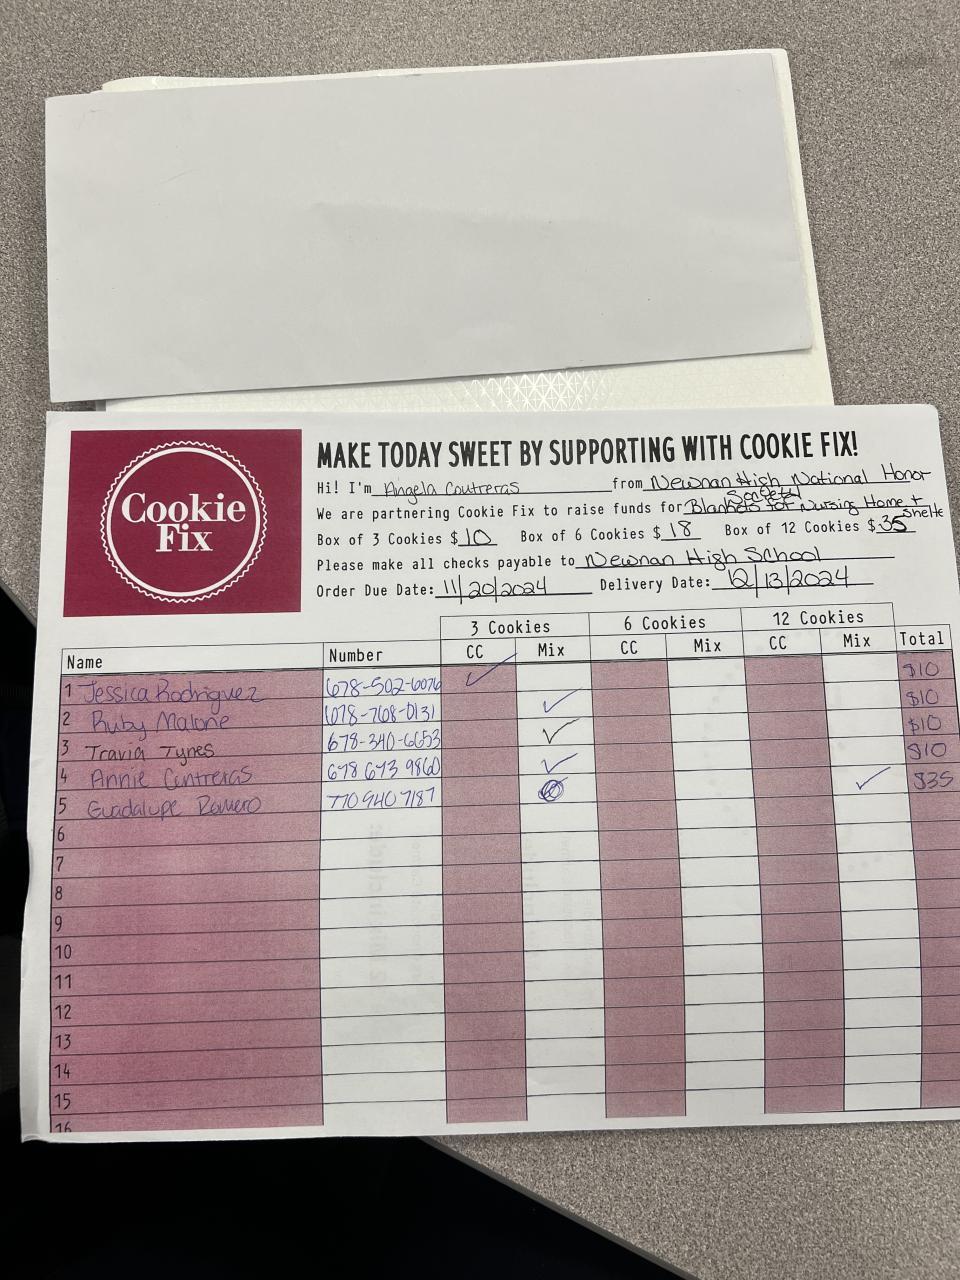 Cookie
Fix
MAKE TODAY SWEET BY SUPPORTING WITH COOKIE FIX!
Hi! I'm Angela Contreras from Newnan High National Honor
Society
We are partnering Cookie Fix to raise funds for Blankets for Nursing Home + Shelte
Box of 3 Cookies $ 10 Box of 6 Cookies $ 18 Box of 12 Cookies $ 35
Please make all checks payable to Newnan High School
Order Due Date: 11/20/2024 Delivery Date: 12/13/2024
3 Cookies 6 Cookies 12 Cookies
Name Number CC Mix CC Mix CC Mix Total
1 Jessica Rodriguez 678-502-6076 ✓ $10
2 Ruby Malone 678-768-0131 ✓ $10
3 Travia Tynes 678-340-6653 ✓ $10
4 Annie Contreras 678 673 9860 ✓ $10
5 Guadalupe Romero 770 940 7187 ✓ $35
6
7
8
9
10
11
12
13
14
15
16